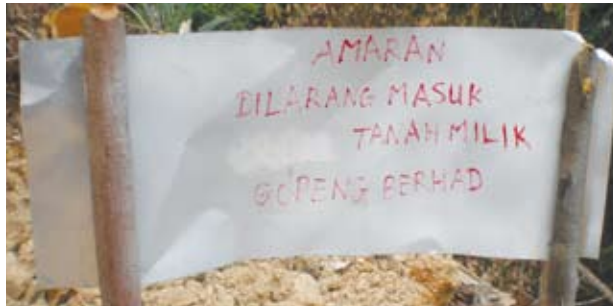 AMARAN
DILARANG MASUK
TANAH MILIK
GOPENG BERHAD